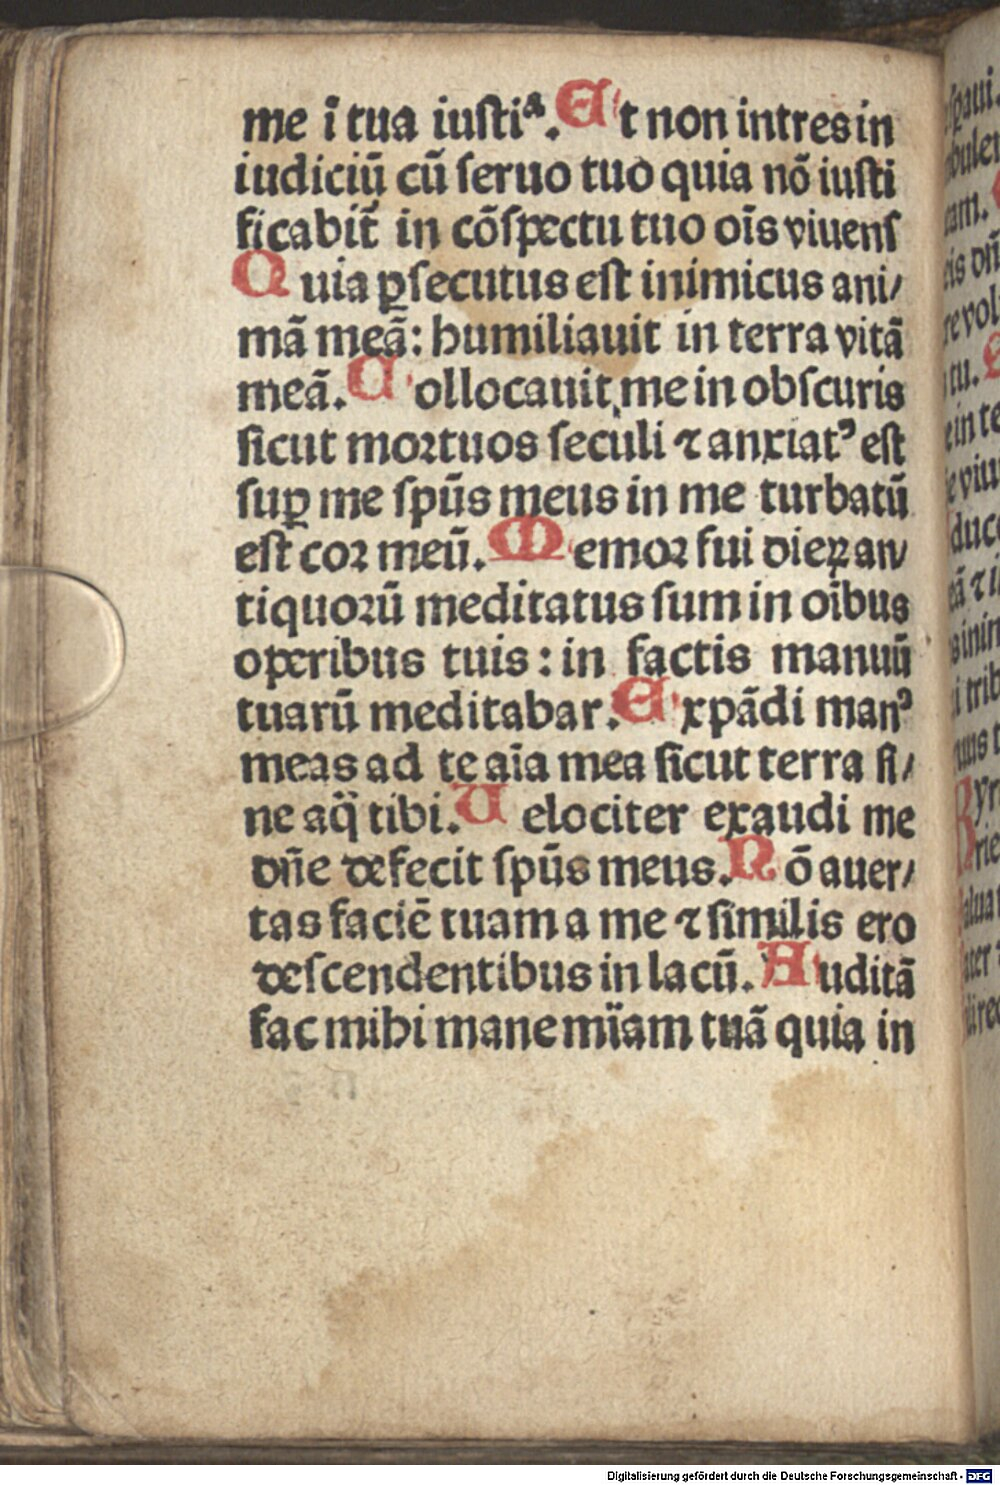 me ī tua iuſtiᵃ. Et non intres in
iudiciū cū ſeruo tuo quia nō iuſti
ficabit̄ in cōſpectu tuo oīs viuens
Quia ꝑſecutus eſt inimicus ani/
mā meā: humiliauit in terra vitā
meā. Collocauit me in obſcuris
ſicut moꝛtuos ſeculi ⁊ anxiatꝰ eſt
suꝑ me ſpūs meus in me turbatū
eſt coꝛ meū. Memoꝛ fui dieꝝ an/
tiquoꝛū meditatus ſum in oībus
operibus tuis: in factis manuū
tuarū meditabar. Expādi manꝰ
meas ad te aīa mea ſicut terra ſi/
ne aq̄ tibi. Velociter exaudi me
dn̄e defecit ſpūs meus. Nō auer/
tas faciē tuam a me ⁊ ſimilis ero
deſcendentibus in lacū. Auditā
fac mihi mane mīam tuā quia in
Digitalisierung gefördert durch die Deutsche Forschungsgemeinschaft - DFG